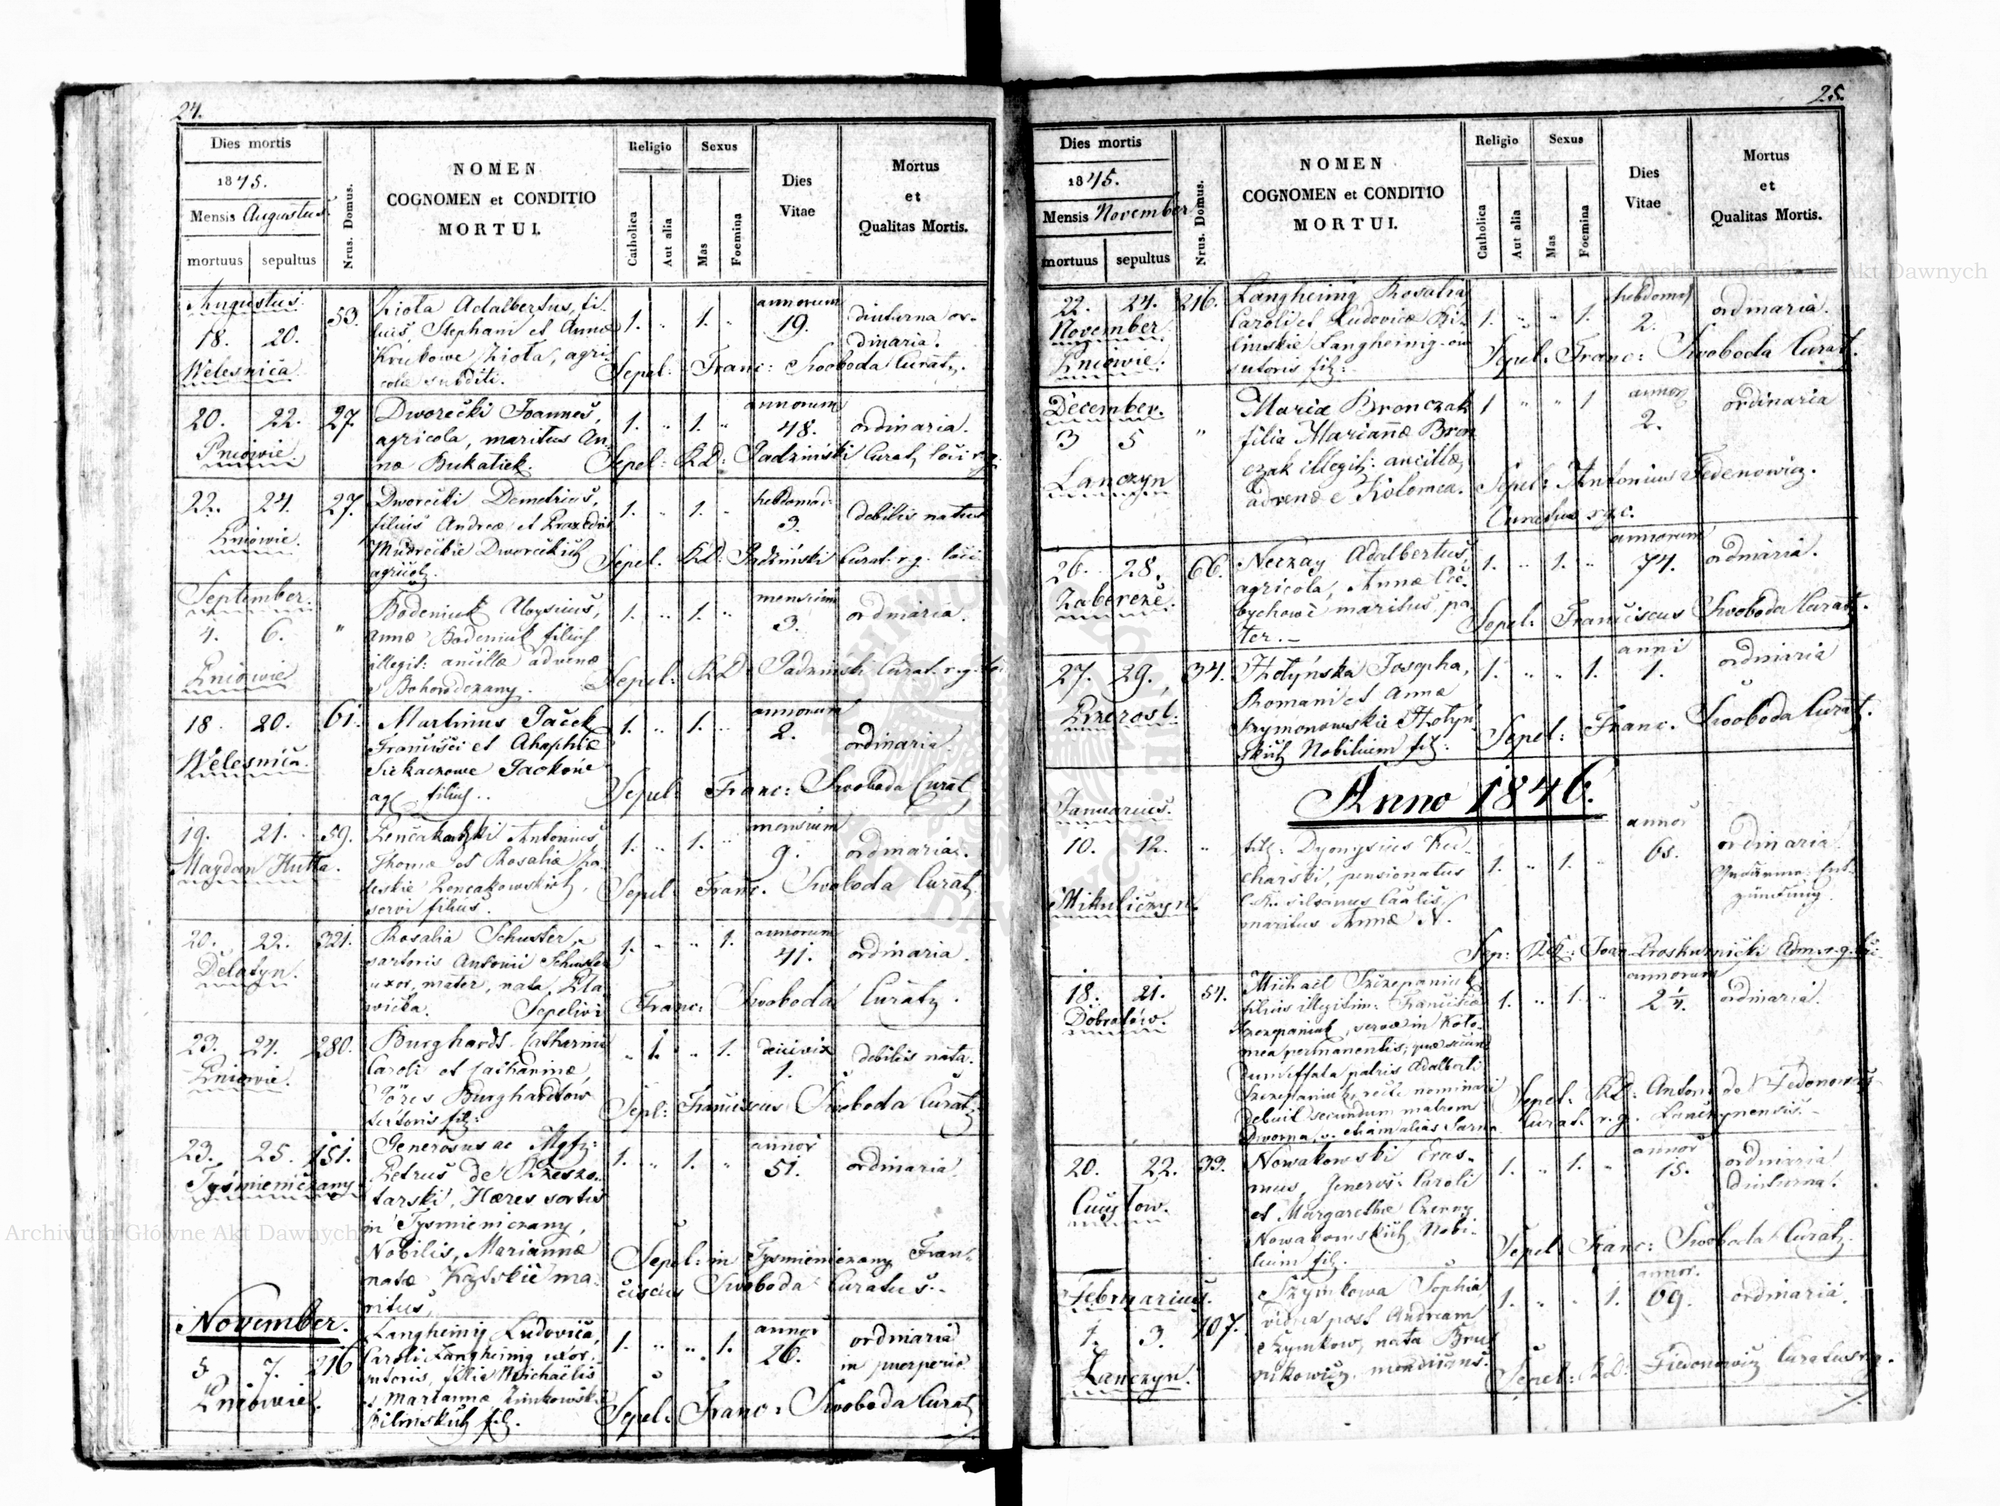 24.
Dies mortis
1845.
Mensis Augustus
mortuus sepultus
Nrus. Domus.
NOMEN
COGNOMEN et CONDITIO
MORTUI.
Religio
Catholica
Aut alia
Sexus
Mas
Foemina
Dies
Vitae
Mortus
et
Qualitas Mortis.
Augustus
18. 20. 53.
Welesnica
Ziola Adalbertus, fi-
lius, Stephani et Annæ
Krukowe Ziola, agri-
colæ subditi.
1. " 1. " annorum 19.
diuturna or-
dinaria.
Sepel: Franc: Swoboda Curat.
20. 22. 27
Pniowie.
Dworečki Joannes,
agricola, maritus An-
næ Bukatiek.
1. " 1. " annorum 48. ordinaria.
Sepel: RD: Jadziński Curat. loci r.g.
22. 24. 27.
Pniowie.
Dworečki Demetrius,
filius Andreæ et
Dworečkich
agricol.
1. " 1. " hebdomad: 3. debilis natus
Sepel. RD: Jadziński Curat. r.g. loci
September.
4. 6. "
Pniowie
Bodeniuk Aloysius,
Annæ Bodeniuk filius
illegit: ancillæ advenæ
e Bohorodczany.
1. " 1. " mensium 3. ordinaria.
Sepel: RD: Jadziński Curat. r.g.
18. 20. 61.
Welesnica.
Martinus Jaček
Francisci et Ahaphiæ
agr filius.
1. " 1. " annorum 2. ordinaria.
Sepel: Franc: Swoboda Curat.
19. 21. 59.
Maydan Hutta.
Antonius,
Thomæ et Rosaliæ Za-
leskie
servi filius.
1. " 1. " mensium 9. ordinaria.
Sepel: Franc. Swoboda Curat.
20. 22. 321.
Delatyn.
Rosalia Schuster,
sartoris Antonii Schuster
uxor, mater, nata
Sepelivi Franc: Swoboda Curat.
1. " " 1. annorum 41. ordinaria.
23. 24. 280.
Pniowie.
Burghardt Catharina
Caroli et Catharinæ
Burghardtów
sutoris fil:
" 1. " 1. 1. debilis nata.
Sepl: Franciscus Swoboda Curat.
23. 25. 151.
Tyśmieniczany
Generosus ac Mgf:
Petrus de Rzeszo-
tarski, Hæres sortis
in Tyśmieniczany,
Nobilis, Mariannæ
natæ ma-
ritus,
1. " 1. " annor 51. ordinaria
Sepel: in Tyśmieniczany Fran-
ciscus Swoboda Curatus.
November.
5. 7. 216
Pniowie.
Langheinig Ludovica,
Caroli Langheinig uxor,
sutoris, filia Michaëlis
et Mariannæ
Bilinskich fil.
1. " " 1. annor 26. ordinaria
in puerperio
Sepel: Franc: Swoboda Curat
25.
Dies mortis
1845.
Mensis November
mortuus sepultus
Nrus. Domus.
NOMEN
COGNOMEN et CONDITIO
MORTUI.
Religio
Catholica
Aut alia
Sexus
Mas
Foemina
Dies
Vitae
Mortus
et
Qualitas Mortis.
22. 24. 216.
November
Pniowie.
Langheinig Rosalia
Caroli et Ludovicæ Bi-
linskie Langheinig
sutoris fil:
1. " " 1. hebdomad 2. ordinaria.
Sepel: Franc: Swoboda Curat.
December.
3 5 "
Lanczyn
Maria Bronczak
filia Mariannæ Bron
czak illegit: ancillæ,
advenæ e Kolomea.
1 " " 1 annor 2. ordinaria
Sepel: Antonius Fedenowicz.
Curatus r.g.c.
26. 28. 66.
Zabereże.
Neczay Adalbertus,
agricola, Annæ
maritus, pa-
ter.
1. " 1. " annorum 74. ordinaria.
Sepel: Franciscus Swoboda Curat.
27. 29. 34.
Przerosl.
Hołyńska Josepha,
Romani et Annæ
Szymonowskie Hołyń-
skich Nobilium fil:
1. " " 1. anni 1. ordinaria
Sepel: Franc. Swoboda Curat.
Anno 1846.
Januarius.
10. 12. "
Mikuliczyn.
tit: Dyonysius Ku-
charski, pensionatus
maritus Annæ N.
1. " 1. " annor 65. ordinaria
Ent-
zündung
Sep: Joan Proskurnicki Adm. r.g.
18. 21. 54.
Dobrotów.
Michaël Szczepaniuk
filius illegitim: Franciscæ
Szczepaniuk, servæ in Kolo-
mea permanentis, quæ secun
dum effata patris Adalberti
Szczepaniuk, recte nominari
debuit secundum matrem
Dworna, v. etiam alias Sarna
1. " 1. " annorum 2¼. ordinaria.
Sepel: RD: Anton de Fedenowicz
Curat. r.g. Lanczynensis.
20. 22. 33.
Cucyłow.
Nowakowski Eras-
mus, Generosi Caroli
et Margarethæ Czerny
Nowakowskich Nobi-
lium fil.
1. " 1. " annor 15. ordinaria
diuturna.
Sepel: Franc: Swoboda Curat.
Februarius.
1. 3. 107.
Lanczyn.
Szymkowa Sophia
vidua post Andream
Szymkow, nata
mendicans.
1. " " 1. annor. 69. ordinaria.
Sepel: RD: Fiedenowicz Curatus r.g.
Archiwum Główne Akt Dawnych
Archiwum Główne Akt Dawnych